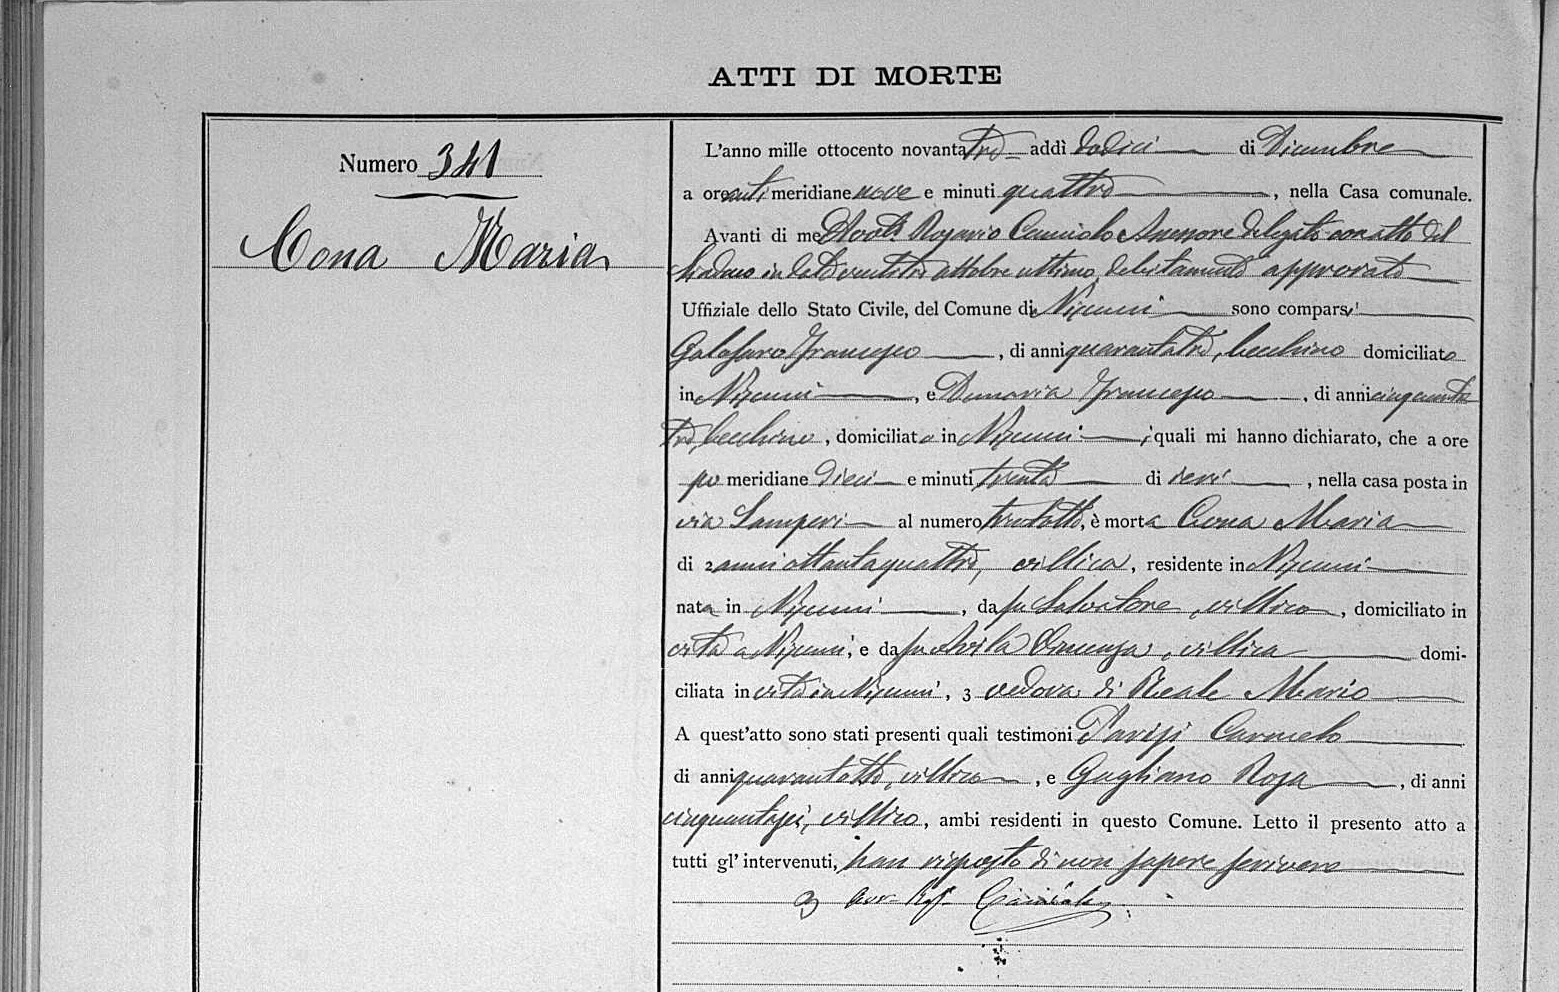 ATTI DI MORTE
Numero 341
Cona Maria
L'anno mille ottocento novantatre addì dodici di Dicembre
a ore anti meridiane nove e minuti quattro, nella Casa comunale.
Avanti di me Avvt. Rosario Assessore delegato con atto del
Sindaco in data ventitre ottobre ultimo, debitamente approvato
Uffiziale dello Stato Civile, del Comune di Niscemi sono comparsi
Galofaro Francesco, di anni quarantatre, becchino domiciliato
in Niscemi, e Francesco, di anni cinquanta
tre, becchino, domiciliato in Niscemi, i quali mi hanno dichiarato, che a ore
po meridiane dieci e minuti trenta di ieri, nella casa posta in
via Samperi al numero trentotto, è morta Cona Maria
di 2 anni ottantaquattro, villica, residente in Niscemi
nata in Niscemi, da fu Salvatore, villico, domiciliato in
vita a Niscemi, e da fu Avila Vincenza, villica domi-
ciliata in vita in Niscemi, 3 vedova di Reale Mario
A quest'atto sono stati presenti quali testimoni Parisi Carmelo
di anni quarantotto, villico, e Gagliano Rosa, di anni
cinquantasei, villico, ambi residenti in questo Comune. Letto il presente atto a
tutti gl'intervenuti, han risposto di non sapere scrivere